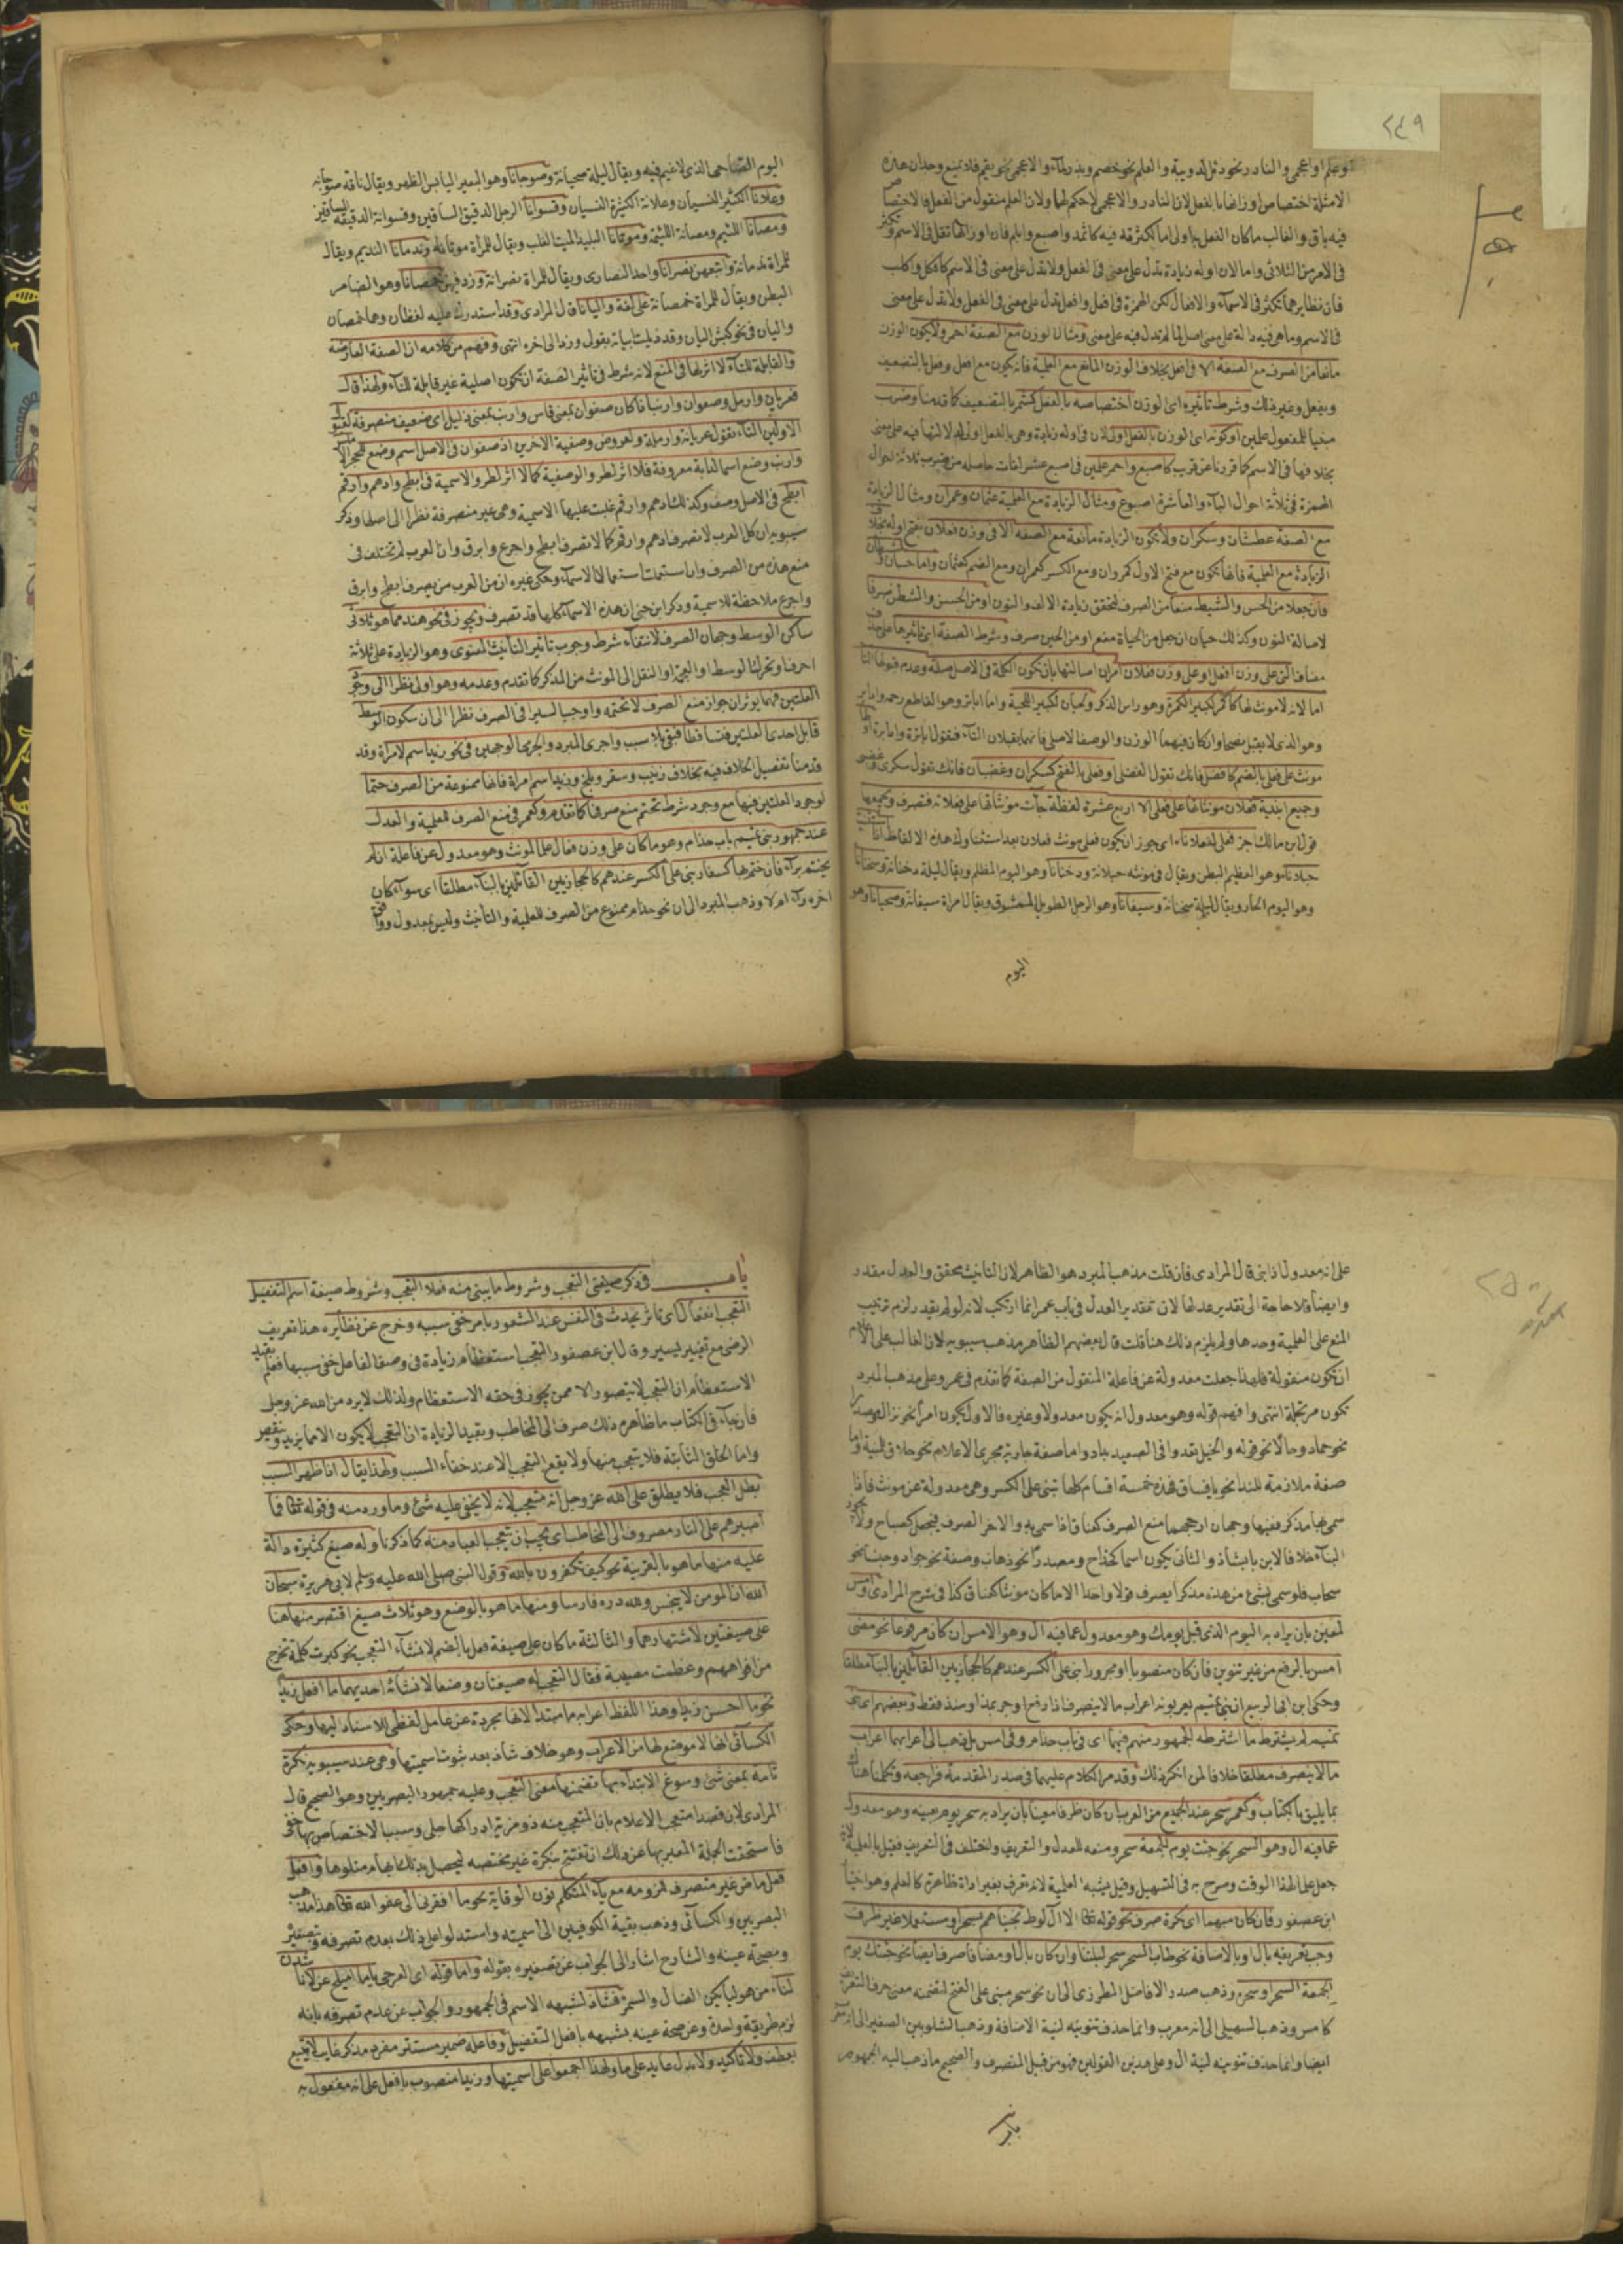 ٢٤٩
او علم او اعجمي والنادر نحو دئل لدويبة والعلم نحو خضم وبذر لماء والاعجمي نحو بقم فلا يمنع وجدان هذه
الامثلة اختصاص اوزانها بالفعل لان النادر والاعجمي لا حكم لهما ولان العلم منقول من الفعل فالاختصاص
فيه باق والغالب ما كان الفعل به اولى اما لكثرته فيه كاثمد واصبع وابلم فان اوزانها تقل في الاسم وتكثر
في الامر من الثلاثي واما لان اوله زيادة تدل على معنى في الفعل ولا تدل على معنى في الاسم كافكل واكلب
فان نظايرهما تكثر في الاسماء والافعال لكن الهمزة في افعل وافعل تدل على معنى في الفعل ولا تدل على معنى
في الاسم وما هي فيه دالة على معنى اصل لما لم تدل فيه على معنى ومثال الوزن مع الصفة احمر ولا يكون الوزن
مانعا من الصرف مع الصفة الا في افعل بخلاف الوزن المانع مع العلمية فانه يكون مع افعل وفعل بالتضعيف
ويفعل وغير ذلك وشرط تأثيره اي الوزن اختصاصه بالفعل كشمر بالتضعيف كما قدمنا وضرب
مبنيا للمفعول علمين او كونه اي الوزن بالفعل اولى لان في اوله زيادة وهي بالفعل اولى
بخلافها في الاسم كما قررناه عن قريب كاصبع واحمر علمين في اصبع عشر لغات حاصله من ضرب ثلاثة احوال
الهمزة في ثلاثة احوال الباء والعاشرة اصبوع ومثال الزيادة مع العلمية عثمان وعمران ومثال الزيادة
مع الصفة عطشان وسكران ولا تكون الزيادة مانعة مع الصفة الا في وزن فعلان بفتح اوله بخلاف
الزيادة مع العلمية فانها تكون مع فتح الاول كمروان ومع الكسر كعمران ومع الضم كعثمان واما حسان
فان جعلا من الحس والشيط منعا من الصرف لتحقق زيادة الالف والنون او من الحسن والشطن صرفا
لاصالة النون وكذلك حيان ان جعل من الحياة منع او من الحين صرف وشرط الصفة اي تاثيرها على
وزن افعل او على وزن فعلان امران اصالتها بان تكون الكلمة في الاصل صفة وعدم قبولها التا
اما لانه لا مونث لها كاكمر لكبير الكمرة وهو راس الذكر ولحيان لكبير اللحية واما اباتر وهو القاطع رحمه
وهو الذي لا يقبل نصحا وان كان فيهما الوزن والوصف الاصلي فانهما يقبلان التاء فتقول اباترة
مونث على فعلى بالضم كافضل فانك تقول الفضلى او فعلى بالفتح كسكران وغضبان فانك تقول سكرى وغضبى
وجميع ابنية فعلان مونثاتها على فعلى الا اربع عشرة لفظة جات مونثاتها على فعلانة فتصرف وجمعها
قول ابن مالك اجز فعلى لفعلانا اي جوز ان يكون فعلى مونث فعلان بعد استثنا هذه الالفاظ
حبلانا وهو العظيم البطن ويقال في مونثه حبلانة ودخنانا وهو اليوم المظلم ويقال ليلة دخنانة وسخنانا
وهو اليوم الحار ويقال لليلة سخنانة وسيفانا وهو الرجل الطويل الممشوق ويقال امراة سيفانة وصحيانا وهو
اليوم
اليوم الذي لا غيم فيه ويقال ليلة صحيانة وصوجانا وهو البعير اليابس الظهر ويقال ناقة صوجانة
وعلانا الكثير النسيان وعلانة الكثيرة النسيان وقشوانا الرجل الدقيق الساقين وقشوانة الدقيقة الساقين
ومصانا اللئيم ومصانة اللئيمة وموتانا البليد الميت القلب ويقال للمراة موتانة وندمانا النديم ويقال
للمراة ندمانة واتبعهن نصرانا واحد النصارى ويقال للمراة نصرانة وزد فيهن خمصانا وهو الضامر
البطن ويقال للمراة خمصانة على لغة واليانا قال المرادي وقد استدرك عليه لفظان وهما خمصان
واليان في نحو كبش اليان وقد ذيلت ابياته بقول وزد الى اخره انتهى وفهم من كلامه ان الصفة العارضة
والقابلة للتاء لا اثر لها في المنع لانه شرط في تاثير الصفة ان تكون اصلية غير قابلة للتاء ولهذا قال
فعريان وارمل وصفوان وارنبا فاكان صفوان بمعنى قاس وارنب بمعنى ذليل اي ضعيف متصرفة لقبول
الاولين التاء تقول عريانة وارملة ولعروض وصفية الاخرين اذ صفوان في الاصل اسم وضع للحجر الاملس
وارنب وضع اسما لدابة معروفة فلا اثر لطرو الوصفية كما لا اثر لطرو الاسمية في ابطح وادهم وارقم
ابطح في الاصل وصف وكذلك ادهم وارقم غلبت عليها الاسمية وهي غير منصرفة نظرا الى اصلها وذكر
سيبويه ان كل العرب لا تصرف ادهم وارقم كما لا تصرف ابطح واجرع وابرق وان العرب لم تختلف في
منع هذه من الصرف وان استعملت استعمال الاسماء وحكى غيره ان من العرب من يصرف ابطح وابرق
واجرع ملاحظة للاسمية وذكر ابن جني ان هذه الاسماء كلها قد تصرف ويجوز في نحو هند مما هو ثلاثي
ساكن الوسط وجهان الصرف لانتفاء شرط وجوب تاثير التانيث المعنوي وهو الزيادة على ثلاثة
احرف او تحرك الوسط او العجمة او النقل الى المونث من المذكر كما تقدم وعدمه وهو اولى نظرا الى وجود
العلتين فهما يوثران جواز منع الصرف لا تحتمه واوجب السيرافي الصرف نظرا الى ان سكون الوسط
قابل احدى العلتين فتساقطا فبقي بلا سبب واجرى المبرد والجرمي الوجهين في نحو زيد اسم لامراة وقد
قدمنا تفصيل الخلاف فيه بخلاف زينب وسقر وبلخ وزيد اسم امراة فانها ممنوعة من الصرف حتما
لوجود العلتين فيها مع وجود شرط تحتم منع صرفها كما تقدم وكعمر في منع الصرف للعلمية والعدل
عند جمهور بني تميم باب حذام وهو ما كان على وزن فعال علما لمونث وهو معدول عن فاعلة ان لم
يختم براء فان ختم بها كسفار بني على الكسر عندهم كالحجازيين القائلين بالبناء مطلقا اي سواء كان
اخره راء ام لا وذهب المبرد الى ان نحو حذام ممنوع من الصرف للعلمية والتانيث وليس بمعدول
٢٥٠
على انه معدول اذا بني قال المرادي فان قلت مذهب المبرد هو الظاهر لان التانيث محقق والعدل مقدر
وايضا فلا حاجة الى تقدير عدلها لان تقدير العدل في باب عمر انما ارتكب لانه لو لم يقدر لزم ترتيب
المنع على العلمية وحدها ولم يلزم ذلك هنا قلت قال بعضهم الظاهر مذهب سيبويه لان الغالب على الاعلام
ان تكون منقولة فلهذا جعلت معدولة عن فاعلة المنقول من الصفة كما تقدم في عمر وعلى مذهب المبرد
تكون مرتجلة انتهى وافهم قوله وهو معدول انه يكون معدولا وغيره فالاول يكون امرا نحو نزال ومصدرا
نحو حماد وحالا نحو قوله والخيل تعدو في الصعيد بداد واما صفة جارية مجرى الاعلام نحو حلاق للمنية واما
صفة ملازمة للندا نحو يا فساق فهذه خمسة اقسام كلها تبنى على الكسر وهي معدولة عن مونث فاذا
سمي بها مذكر ففيها وجهان ارجحهما منع الصرف كعناق اذا سمي به والاخر الصرف فيجعل كصباح ولا يجوز
البناء خلافا لابن بابشاذ والثاني يكون اسما كجناح ومصدرا نحو ذهاب وصفة نحو جواد وجنسا نحو
سحاب فلو سمي بشئ من هذه مذكرا صرف قولا واحدا الا ما كان مونثا كعناق كذا في شرح المرادي وامس
لمعين بان يراد به اليوم الذي قبل يومك وهو معدول عما فيه ال وهو الامس ان كان مرفوعا نحو مضى
امس بالرفع من غير تنوين فان كان منصوبا او مجرورا بني على الكسر عندهم كالحجازيين القائلين بالبناء مطلقا
وحكى ابن ابي الربيع ان بني تميم يعربونه اعراب ما لا ينصرف اذا رفع او جر بمذ او منذ فقط وبعضهم اي بني
تميم لم يشترط ما اشترطه الجمهور منهم فيهما اي في باب حذام وفي امس بل ذهب الى اعرابهما اعراب
ما لا ينصرف مطلقا خلافا لمن انكر ذلك وقد مر الكلام عليهما في صدر المقدمة فراجعه وتكلمنا هناك
بما يليق بالكتاب وكعمر سحر عند الجميع من العرب ان كان ظرفا معينا بان يراد به سحر يوم بعينه وهو معدول
عما فيه ال وهو السحر نحو جئت يوم الجمعة سحر ومنعه للعدل والتعريف واختلف في التعريف فقيل بالعلمية لانه
جعل علما لهذا الوقت وصرح به في التسهيل وقيل بشبه العلمية لانه تعرف بغير اداة ظاهرة كالعلم وهو اختيار
ابن عصفور فان كان مبهما اي نكرة صرف نحو قوله تعالى الا ال لوط نجيناهم بسحر او مستعملا غير ظرف
وجب تعريفه بال او بالاضافة نحو طاب السحر سحر ليلتنا وان كان بال او مضافا صرف ايضا نحو جئتك يوم
الجمعة السحر او سحره وذهب صدر الافاضل المطرزي الى ان نحو سحر مبني على الفتح لتضمنه معنى حرف التعريف
كامس وذهب السهيلي الى انه معرب وانما حذف تنوينه لنية الاضافة وذهب الشلوبين الصغير الى انه معرب
ايضا وانما حذف تنوينه لنية ال وعلى هذين القولين فهو من قبيل المنصرف والصحيح ما ذهب اليه الجمهور
باب
باب في ذكر صيغتي التعجب وشروط ما يبنى منه فعلا التعجب وشروط صيغة اسم التفضيل
التعجب انفعال اي تاثر يحدث في النفس عند الشعور بامر خفي سببه وخرج عن نظايره هذا تعريف
الرضى مع تغيير يسير وقال ابن عصفور التعجب استعظام زيادة في وصف الفاعل خفي سببها فعلم بقيد
الاستعظام ان التعجب لا يتصور الا ممن يجوز في حقه الاستعظام ولذلك لا يرد من الله عز وجل
فان جاء في الكتاب ما ظاهره ذلك صرف الى المخاطب وبقيد الزيادة ان التعجب لا يكون الا مما يزيد وينقص
واما الخلق الثابتة فلا يتعجب منها ولا يقع التعجب الا عند خفاء السبب ولهذا يقال اذا ظهر السبب
بطل العجب فلا يطلق على الله عز وجل انه متعجب لانه لا يخفى عليه شئ وما ورد منه في قوله تعالى فما
اصبرهم على النار مصروف الى المخاطب اي يجب ان يتعجب العباد منه كما ذكرنا وله صيغ كثيرة دالة
عليه منها ما هو بالقرينة نحو كيف تكفرون بالله وقول النبي صلى الله عليه وسلم لابي هريرة سبحان
الله ان المومن لا ينجس ولله دره فارسا ومنها ما هو بالوضع وهو ثلاث صيغ اقتصر منها هنا
على صيغتين لاشتهارهما والثالثة ما كان على صيغة فعل بالضم لانشاء التعجب نحو كبرت كلمة تخرج
من افواههم وعظمت مصيبة فقال التعجب له صيغتان وضعا لانشائه احديهما ما افعل زيدا
نحو ما احسن زيدا وهذا اللفظ اعرابه ما مبتدا لانها مجردة عن عامل لفظي للاسناد اليها وحكى
الكسائي انها لا موضع لها من الاعراب وهو خلاف شاذ بعد ثبوت اسميتها وهي عند سيبويه نكرة
تامة بمعنى شئ وسوغ الابتداء بها تضمنها معنى التعجب وعليه جمهور البصريين وهو الصحيح قال
المرادي لان قصد المتعجب الاعلام بان المتعجب منه ذو مزية ادراكها جلي وسبب الاختصاص بها خفي
فاستحقت الجملة المعبر بها عن ذلك ان تفتتح بنكرة غير مختصه ليحصل بذلك ابهام متلوها وافعل
فعل ماض غير متصرف للزومه مع ياء المتكلم نون الوقاية نحو ما افقرني الى عفو الله تعالى هذا مذهب
البصريين والكسائي وذهب بقية الكوفيين الى اسميته واستدلوا على ذلك بعدم تصرفه وبتصغيره
وبصحة عينه والشارح اشار الى الجواب عن تصغيره بقوله واما قوله اي العرجي ياما اميلح غزلانا شدن
لنا من هوليائكن الضال والسمر فشاذ لشبهه الاسم في الجمهور والجواب عن عدم تصرفه بانه
لزم طريقة واحدة وعن صحة عينه بشبهه بافعل التفضيل وفاعله ضمير مستتر مفرد مذكر غايب لا يتبع
بعطف ولا تاكيد ولا بدل عايد على ما ولهذا اجمعوا على اسميتها وزيدا منصوب بافعل على انه مفعول به